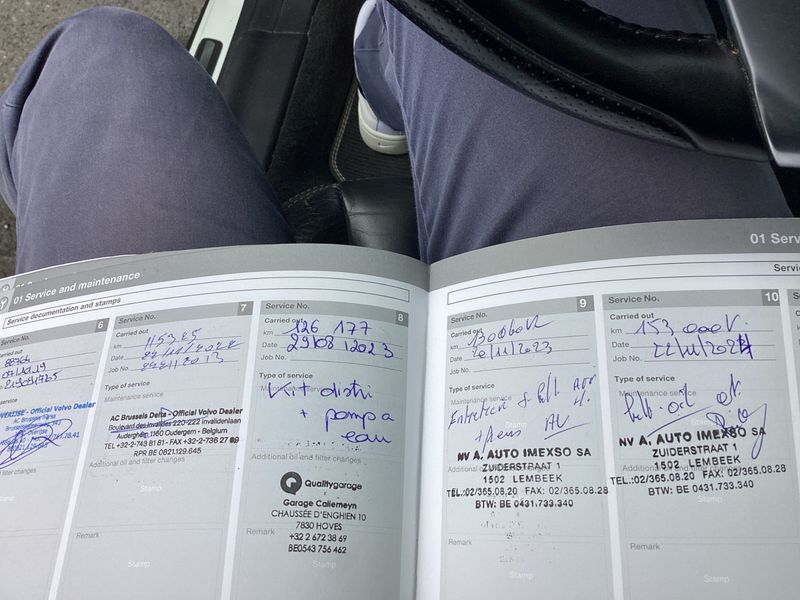 01 Service and maintenance
Service documentation and stamps
6
Carried out
Type of service
- Official Volvo Dealer
filter changes
Service No. 7
Carried out
km 115325
Date
Job No.
Type of service
Maintenance service
AC Brussels Delta - Official Volvo Dealer
Boulevard des Invalides 220-222 Invalidenlaan
Auderghem 1160 Oudergem - Belgium
TEL +32-2-743 81 81 - FAX +32-2-736 27 09
RPR BE 0821.129.645
Additional oil and filter changes
Stamp
Remark
Stamp
Service No. 8
Carried out
km 126 177
Date 29/08/2023
Job No.
Type of service
Maintenance service
Kit distri
+ pomp a
eau
Additional oil and filter changes
Qualitygarage
Garage Callemeyn
CHAUSSÉE D'ENGHIEN 10
7830 HOVES
+32 2 672 38 69
BE0543 756 462
Remark
Stamp
01 Serv
Servi
Service No. 9
Carried out
km 130000
Date 20/11/2023
Job No.
Type of service
Maintenance service
Entretien
+ Pneus AV
NV A. AUTO IMEXSO SA
ZUIDERSTRAAT 1
1502 LEMBEEK
TEL.:02/365.08.20 FAX: 02/365.08.28
BTW: BE 0431.733.340
Additional oil and filter changes
Remark
Stamp
Service No. 10
Carried out
km 153 000
Date 22/11/2024
Job No.
Type of service
Maintenance service
NV A. AUTO IMEXSO SA
ZUIDERSTRAAT 1
1502 LEMBEEK
TEL.:02/365.08.20 FAX: 02/365.08.28
BTW: BE 0431.733.340
Additional oil and filter changes
Stamp
Remark
Stamp